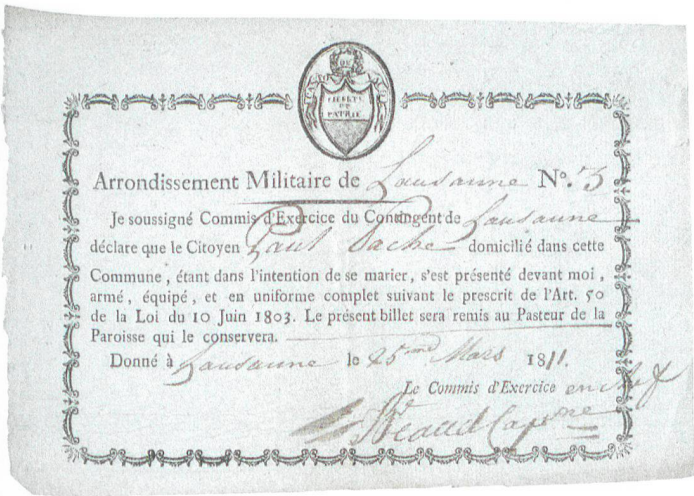 LIBERTÉ
ET
PATRIE
Arrondissement Militaire de Lausanne N.º 3
Je soussigné Commis d'Exercice du Contingent de Lausanne
déclare que le Citoyen Paul Pache domicilié dans cette
Commune, étant dans l'intention de se marier, s'est présenté devant moi,
armé, équipé, et en uniforme complet suivant le prescrit de l'Art. 50
de la Loi du 10 Juin 1803. Le présent billet sera remis au Pasteur de la
Paroisse qui le conservera.
Donné à Lausanne le 25me Mars 1811.
Le Commis d'Exercice en chef